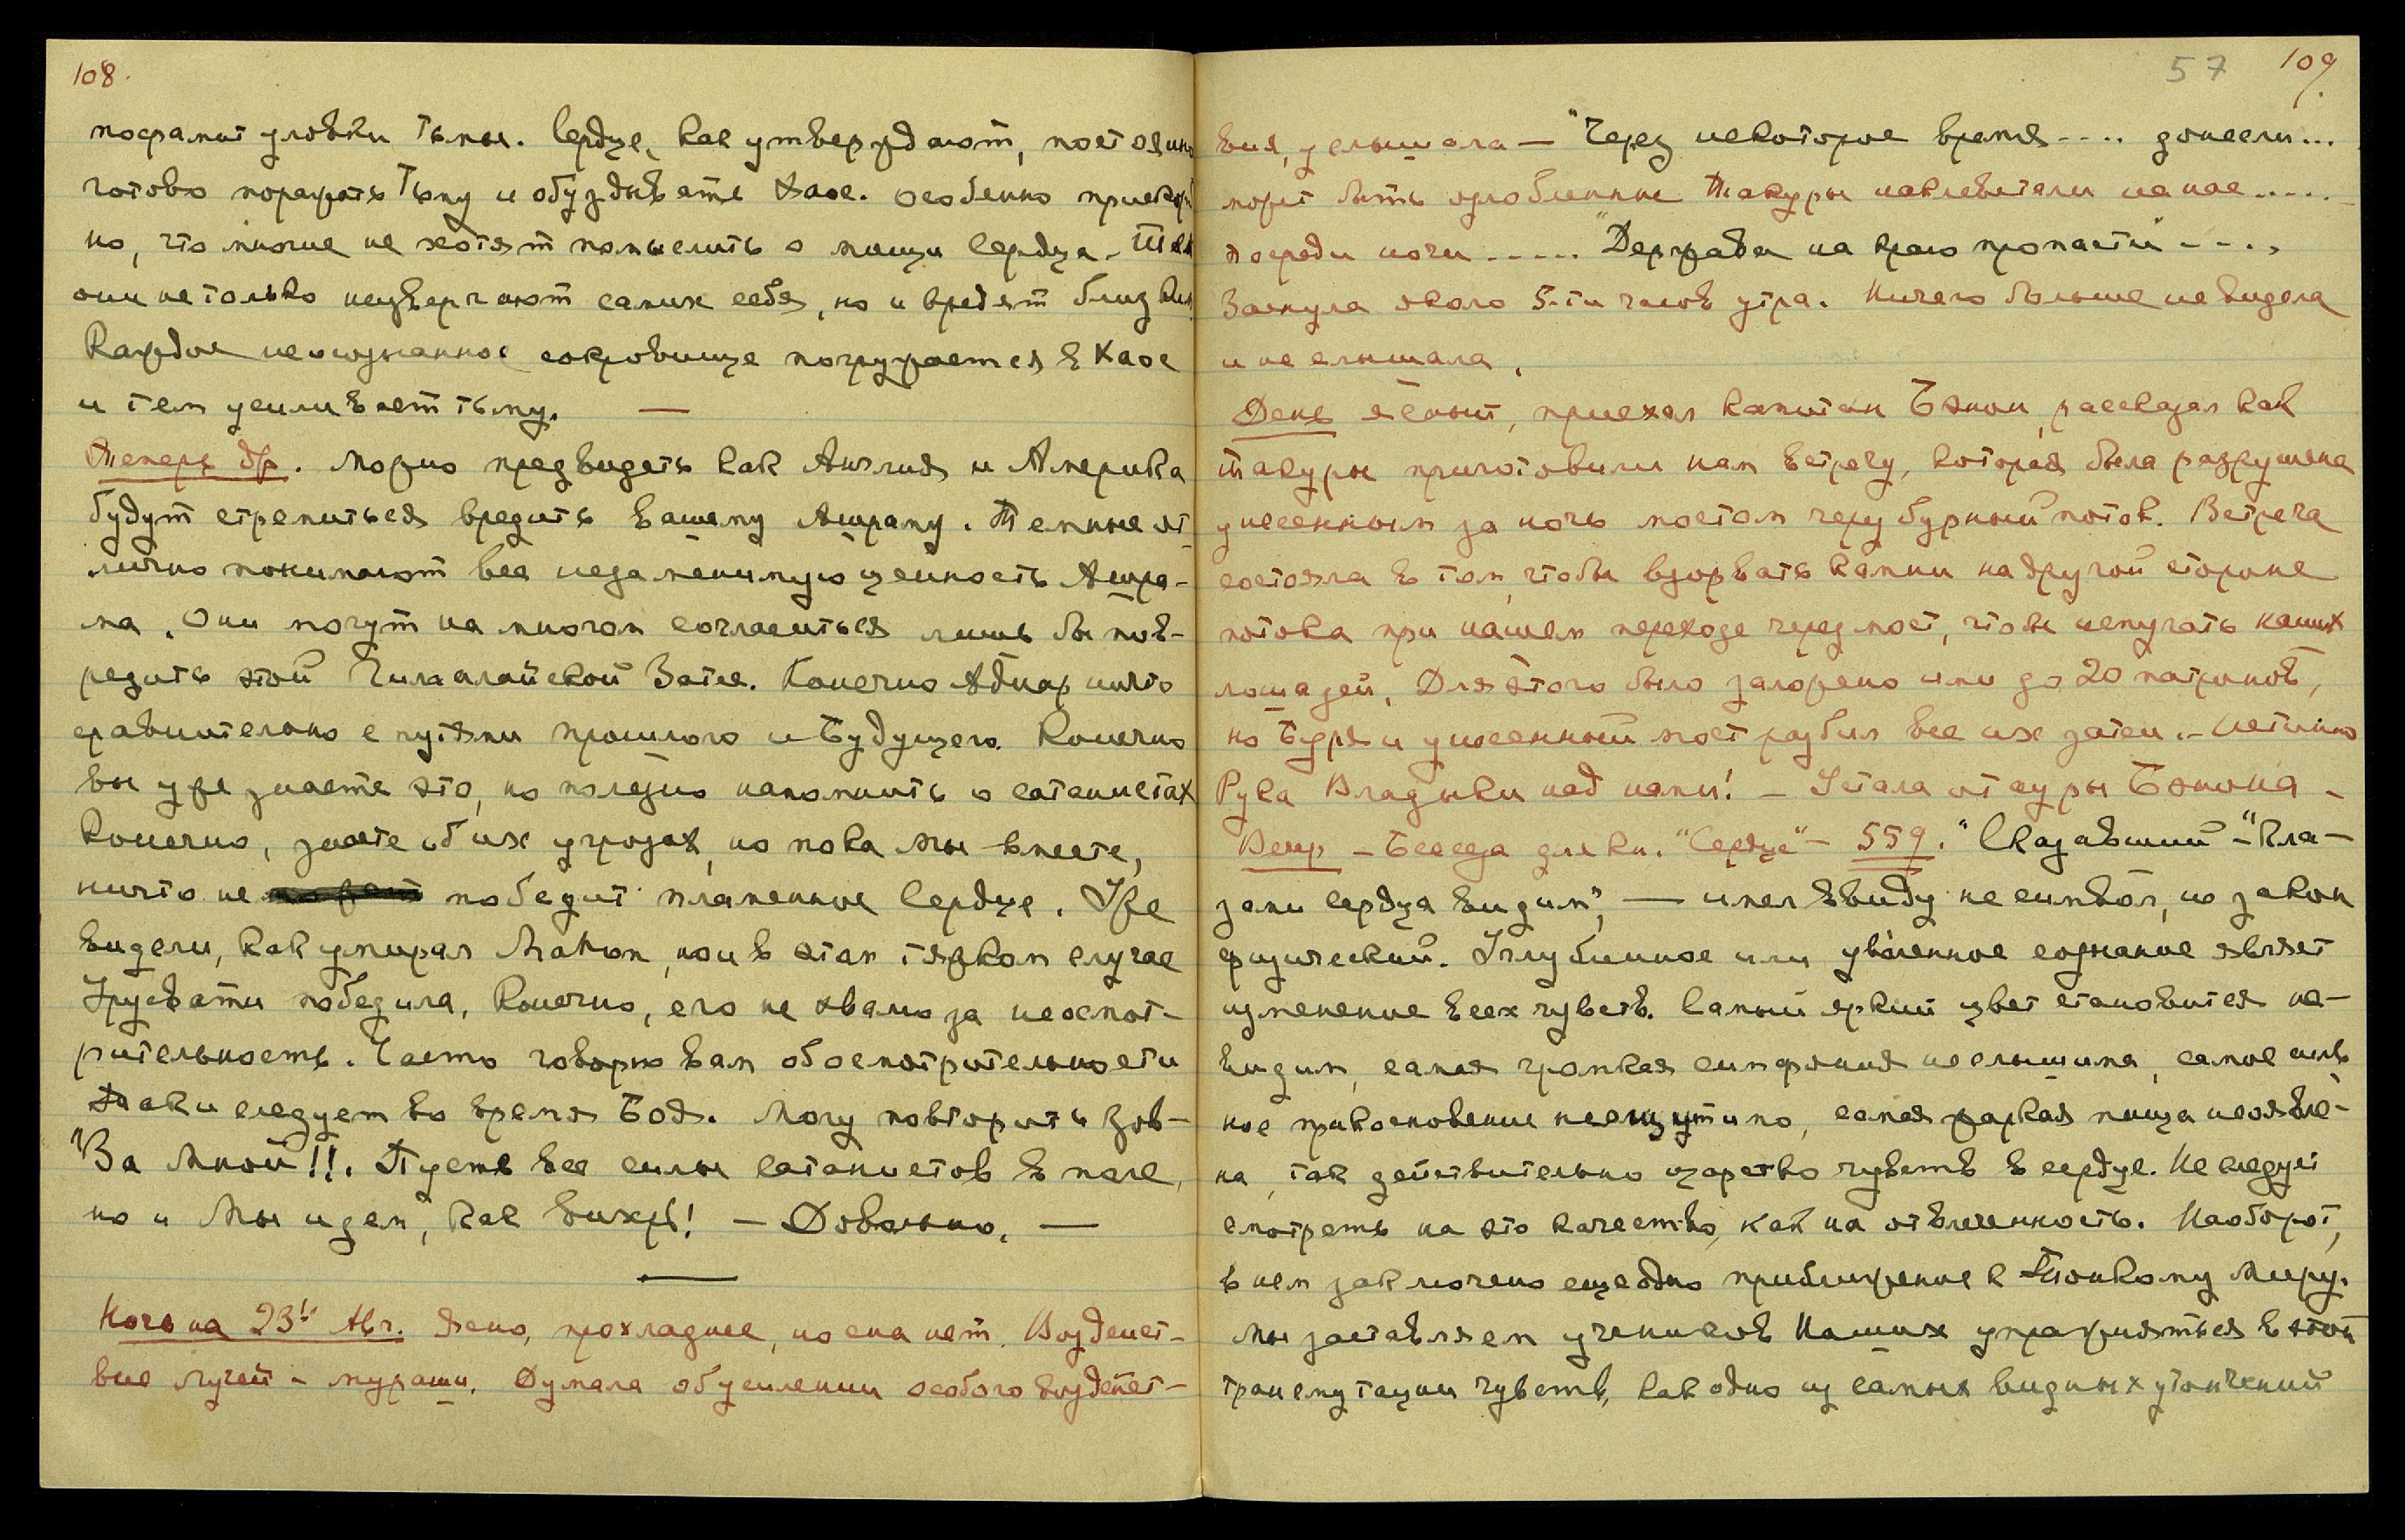 108.
посрамит уловки тьмы. Сердце, как утверждают, постоянно
готово поражать Тьму и обуздывать Хаос. Особенно прискорб
но, что многие не хотят помыслить о мощи Сердца. Тем
они не только низвергают самих себя, но и вредят близким
Каждое неосознанное сокровище погружается в Хаос
и тем усиливает тьму. —
Теперь др. Можно предвидеть как Англия и Америка
будут стремиться вредить Вашему Ашраму. Темные от
лично понимают всю незаменимую ценность Ашра-
ма. Они могут на многом согласиться лишь бы пов-
редить этой Гималайской Затее. Конечно Адиар ничто
сравнительно с путями прошлого и Будущего. Конечно
вы уже знаете это, но полезно напомнить о сатанистах
Конечно, знаете об их угрозах, но пока мы вместе,
ничто не победит пламенное Сердце. Уже
видели, как умирал Мавон, но и в этом тяжком случае
Урусвати победила, Конечно, его не хвалю за неосмот-
рительность. Часто говорю вам об осмотрительности
Так и следует во время Боя. Могу повторить Зов —
"За Мной"!!. Пусть все силы сатанистов в поле,
но и Мы идем, как вихрь! — Довольно. —
Ночь на 23е Авг. Ясно, прохладнее, но сна нет. Воздейст-
вие лучей – мураши. Думала об усилении особого воздейст-
57 109.
вия, услышала — "Через некоторое время.... донесли...
может быть озлобленные Такуры наклеветали на нас.....
посреди ночи..... "Державы на краю пропасти"....
Заснула около 5-ти часов утра. Ничего больше не видела
и не слышала.
День ясный, приехал капитан Бэнон, рассказал как
Такуры приготовили нам встречу, которая была разрушена
унесенным за ночь мостом через бурный поток. Встреча
состояла в том, чтобы взорвать камни на другой стороне
потока при нашем переходе через мост, чтобы испугать наших
лошадей. Для этого было заложено ими до 20 патронов,
но Буря и унесенный мост разбил все их затеи. – Истинно
Рука Владыки над нами! – Устала от ауры Бэнона –
Вечер – Беседа для кн. "Сердце" – 559. "Сказавший – "Гла-
зами сердца видим", — имел ввиду не символ, но закон
физический. Углубленное или уволенное сознание являет
изменение всех чувств. Самый яркий цвет становится не-
видим, самая громкая симфония неслышима, самое силь
ное прикосновение неощутимо, самая жаркая пища неявле-
на, так действительно царство чувств в сердце. Не следует
смотреть на это качество, как на отвлеченность. Наоборот,
в нем заключено еще одно приближение к Тонкому Миру.
Мы заставляем учеников Наших упражняться в этой
трансмутации чувств, как одно из самых видных утончений